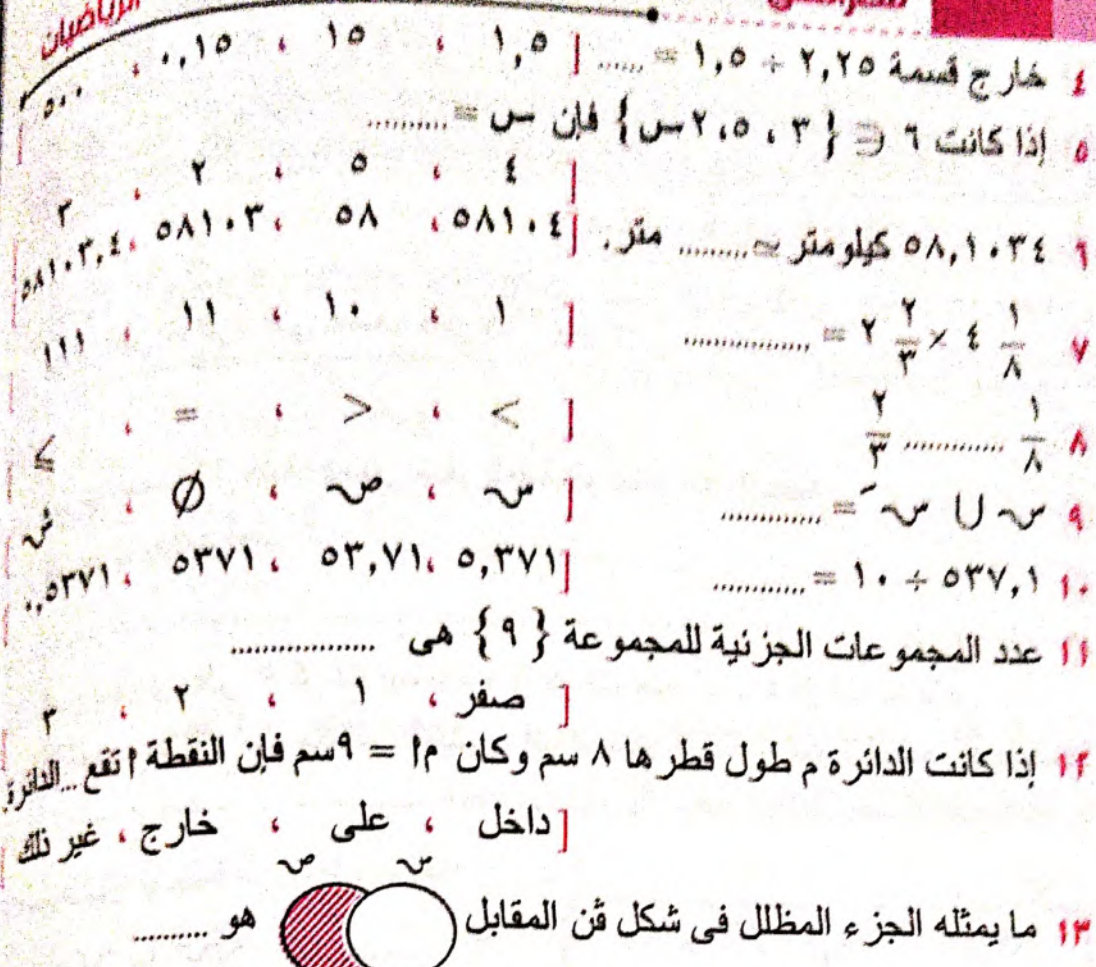 الرياضيات
٤ خارج قسمة ٢,٢٥ ÷ ١,٥ = ...... [ ١,٥ ، ١٥ ، ٠,١٥ ، ٥٠٠
٥ إذا كانت ٦ ∈ { ٣ ، ٥ ، ٢س } فإن س = ..........
[ ٤ ، ٥ ، ٢ ، ٣
٦ ٥٨,١٠٣٤ كيلو متر ≃ ......... متر. [ ٥٨١٠٤ ، ٥٨ ، ٥٨١٠٣ ، ٥٨١٠٣,٤
٧ ٤ ١/٨ × ٢ ٢/٣ = ................ [ ١ ، ١٠ ، ١١ ، ١١١
٨ ١/٨ ............. ٢/٣ [ < ، > ، = ، ≤
٩ س ∪ سَ = ............. [ س ، ص ، Ø ، ش
١٠ ٥٣٧,١ ÷ ١٠ = ............ [ ٥,٣٧١ ، ٥٣,٧١ ، ٥٣٧١ ، ٠,٥٣٧١
١١ عدد المجموعات الجزئية للمجموعة { ٩ } هى ..................
[ صفر ، ١ ، ٢ ، ٣
١٢ إذا كانت الدائرة م طول قطرها ٨ سم وكان م أ = ٩سم فإن النقطة أ تقع ... الدائرة
[ داخل ، على ، خارج ، غير ذلك
١٣ ما يمثله الجزء المظلل فى شكل ڤن المقابل ص س هو ..........